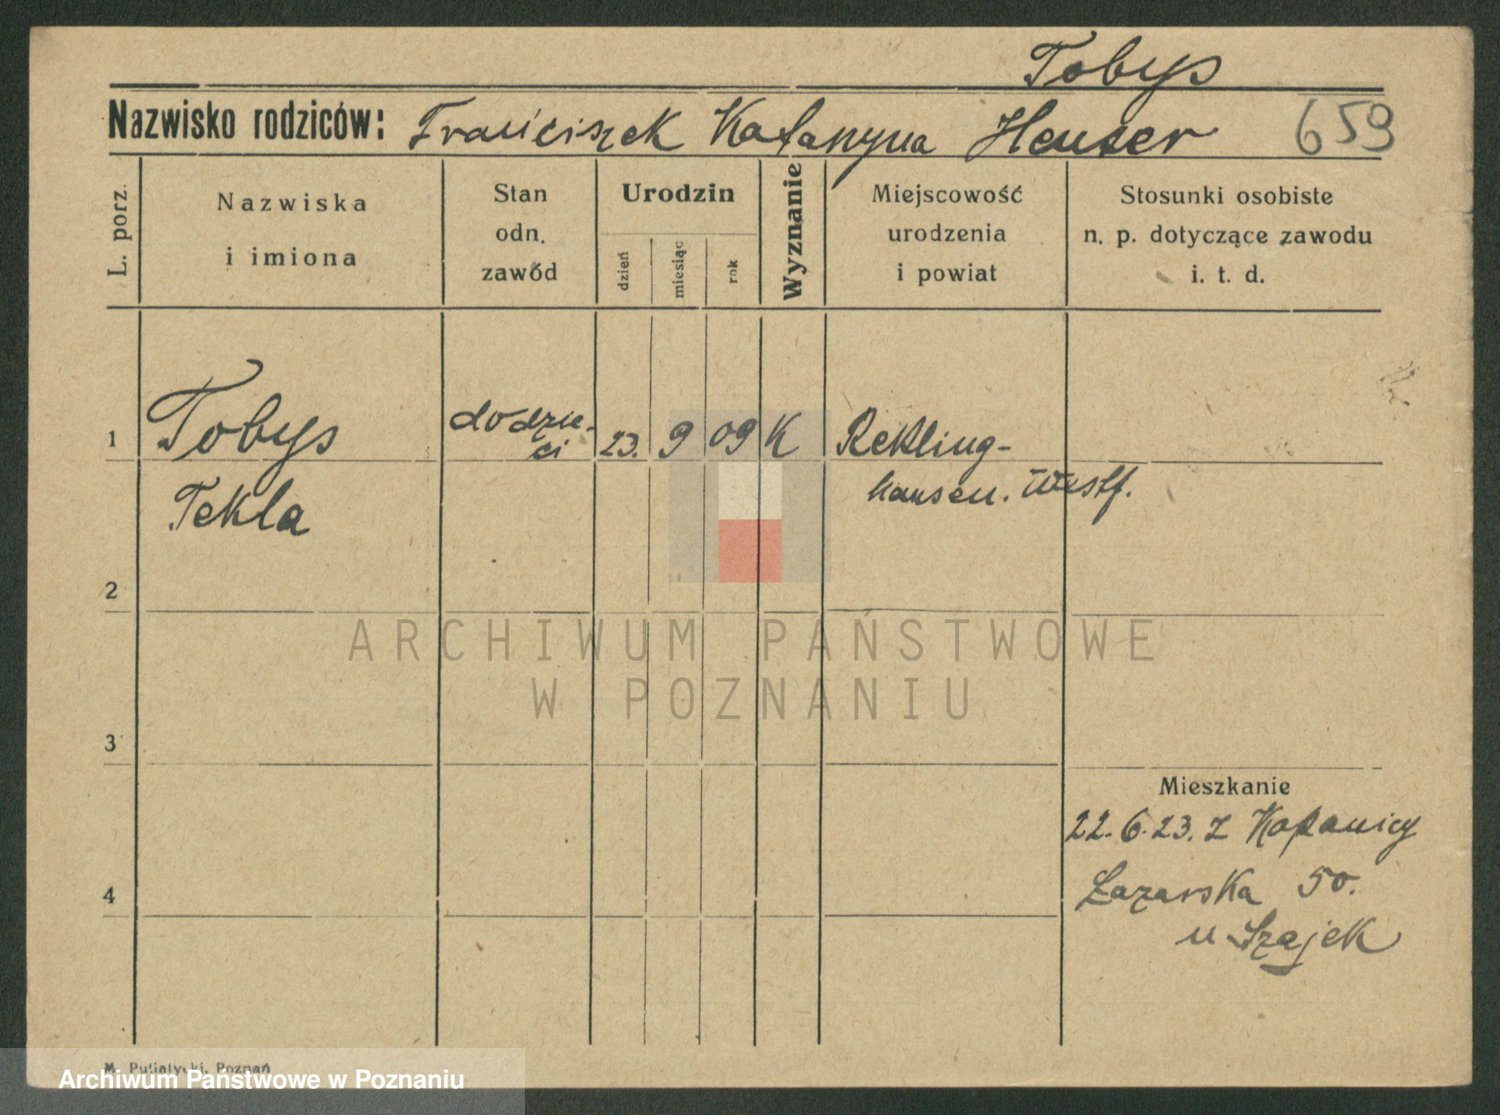 Tobys
Nazwisko rodziców: Franciszek Katarzyna Heuser 659
L. porz. Nazwiska i imiona Stan odn. zawód Urodzin dzień miesiąc rok Wyznanie Miejscowość urodzenia i powiat Stosunki osobiste n. p. dotyczące zawodu i. t. d.
1 Tobys do dzie- 23. 9 09 K Rekling-
ci
Tekla hausen. Westf.
2
ARCHIWUM PAŃSTWOWE
W POZNANIU
3
Mieszkanie
22.6.23. z Kopanicy
4 Łazarska 50.
u Szajek
M. Putiatycki, Poznań
Archiwum Państwowe w Poznaniu